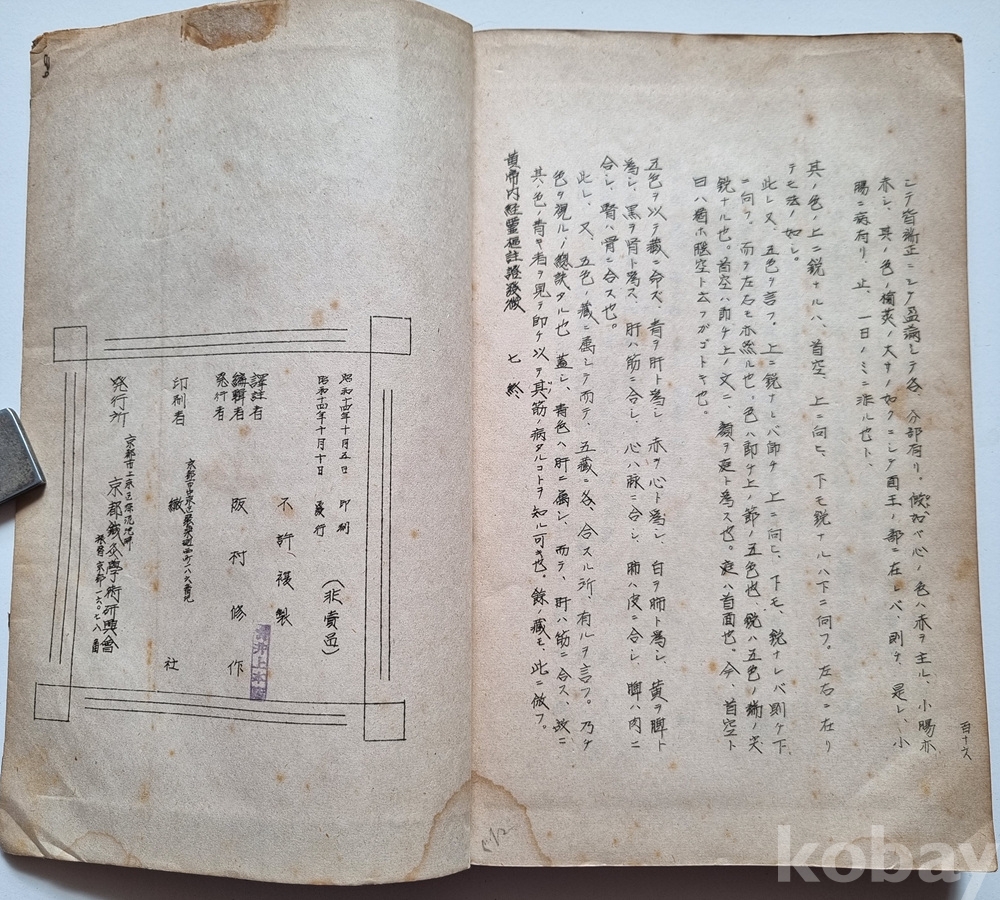 シテ皆端正ニシテ盈満シテ各、分部有リ、假如バ心ノ色ハ赤ヲ主ル、小腸亦
赤シ、其ノ色ノ楡莢ノ大サノ如クニシテ面王ノ部ニ在レバ、則チ、是レ、小
腸ニ病有リ、止、一日ノミニ非ル也ト、
其ノ色ノ上ニ鋭ナルハ、首空、上ニ向ヒ、下モ鋭ナルハ下ニ向フ。左右ニ在リ
テモ法ノ如シ。
此レ又、五色ヲ言フ。上ニ鋭ナレバ即チ上ニ向ヒ、下モ、鋭ナレバ則チ下
ニ向フ。而テ左右モ亦然ル也。色ハ即チ上ノ節ノ五色也、鋭ハ五色ノ端ノ尖
鋭ナル也。首空ハ即チ上ノ文ニ、顔ヲ庭ト為ス也。庭ハ首面也。今、首空ト
曰ハ猶ホ脳空ト云フガゴトキ也。
五色ヲ以テ藏ニ命ズ、青ヲ肝ト為シ、赤ヲ心ト為シ、白ヲ肺ト為シ、黄ヲ脾ト
為シ、黒ヲ腎ト為ス、肝ハ筋ニ合シ、心ハ脉ニ合シ、肺ハ皮ニ合シ、脾ハ肉ニ
合シ、腎ハ骨ニ合ス也。
此レ、又、五色ノ藏ニ屬シテ而テ、五藏ニ各、合スル所、有ルヲ言フ。乃チ
色ヲ視ル、總訣タル也 蓋シ、青色ハ肝ニ屬シ、而テ、肝ハ筋ニ合ス、故ニ
其ノ色ノ青キ者ヲ見テ即チ以テ其筋ノ病タルコトヲ知ル可キ也。餘ノ藏モ、此ニ倣フ。
黄帝内經靈樞註證發微 七 終
百十六
昭和十四年十月五日 印刷
昭和十四年十月十日 発行
(非賣品)
不許複製
譯註者
編輯者
発行者
阪村修作
印刷者
社
発行所
京都鍼灸學術研興會
kobay